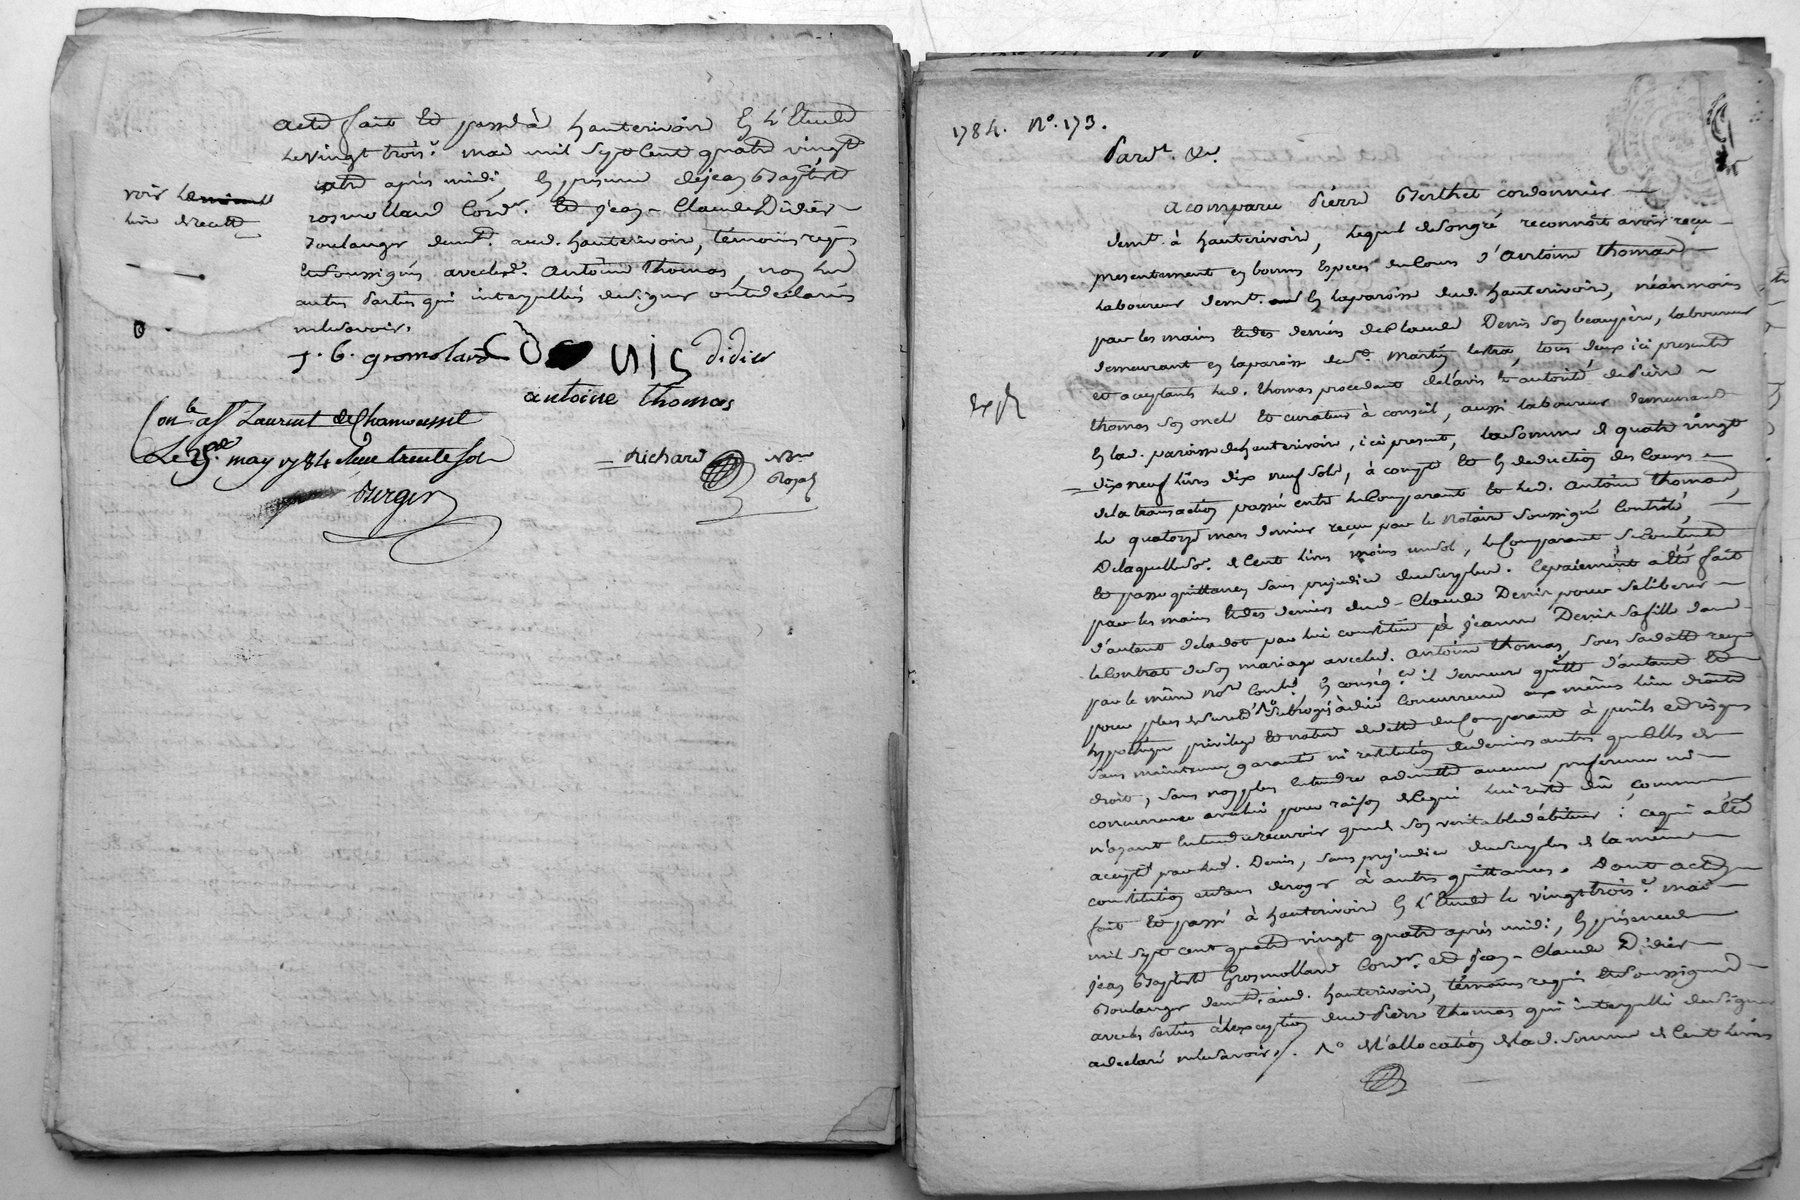 acte fait et passé à hauterivoire en l'Etude
le vingt trois.e mai mil sept cent quatre vingt
quatre après midi, en présence de jean Baptiste
Grosmolland Cord.r et jean-Claude Didier
Boulanger dem.t aud. hauterivoire, temoins requis
et soussignés avec led. Antoine Thomas, non les
autres parties qui interpellées de signer ont déclaré
ne le savoir.
voir
j. b. gromolard
didier
antoine thomas
Con.lé a S.t Laurent de Chamousset
Le may 1784 Reçu trente sols
Richard
Not.re Royal
1784. N.o 173.
Pard.t &c.
a comparu Pierre Berthet cordonnier
dem.t à hauterivoire, lequel de son gré reconnoit avoir reçu
presentement en bonnes Especes du Cours d'Antoine Thomas
Laboureur dem.t en la paroisse dud. hauterivoire, néanmoins
par les mains et des deniers de Claude Denis son beaupère, laboureur
demeurant en la paroisse de S.t Martin lestra, tous deux ici presents
et acceptants led. Thomas procedant de l'avis et autorité de Pierre
Thomas son oncle et curateur à conseil, aussi laboureur demeurant
en lad. paroisse de hauterivoire, ici present, la somme de quatre vingt
dix neuf livres dix neuf sols, à compte et en deduction des Causes
de la transaction passée entre le Comparant et led. Antoine Thomas
le quatorze mars dernier reçue par le Notaire soussigné Controlé,
De laquelle so.e de Cent livres moins un sol, le Comparant se contente
et passe quittance sans prejudice du surplus. Ce paiement a été fait
par les mains et des deniers dud. Claude Denis pour se liberer
d'autant de la dot par lui constituée à jeanne Denis sa fille dans
le Contrat de son mariage avec led. Antoine Thomas, sous sa datte reçu
par le même no.re Cont.lé, en conséq.ce il demeure quitte d'autant et
pour plus de sureté subrogé à due Concurrence aux mêmes lieu droits
hypotheque privilege et nature de dette du Comparant à perils et risques
sans maintenue garantie ni restitution de deniers autres que celles de
droit, sans non plus Entendre admettre aucune préference ni
concurrence avec lui pour raison de ce qui lui reste dû, comme
n'ayant Entendu recevoir que de son veritable débiteur: ce qui a été
accepté par led. Denis, sans prejudice du surplus de la même
constitution et sans deroger à autres quittances. Dont acte
fait et passé à hauterivoire en l'Etude le vingt trois.e mai
mil sept cent quatre vingt quatre après midi, en présence de
jean Baptiste Grosmolland Cord.r et jean-Claude Didier
Boulanger dem.t aud. hauterivoire, témoins requis et soussignés
avec les parties à l'exception dud. Pierre Thomas qui interpellé de signer
a declaré ne le savoir. de l'allocation de lad. somme de Cent livres